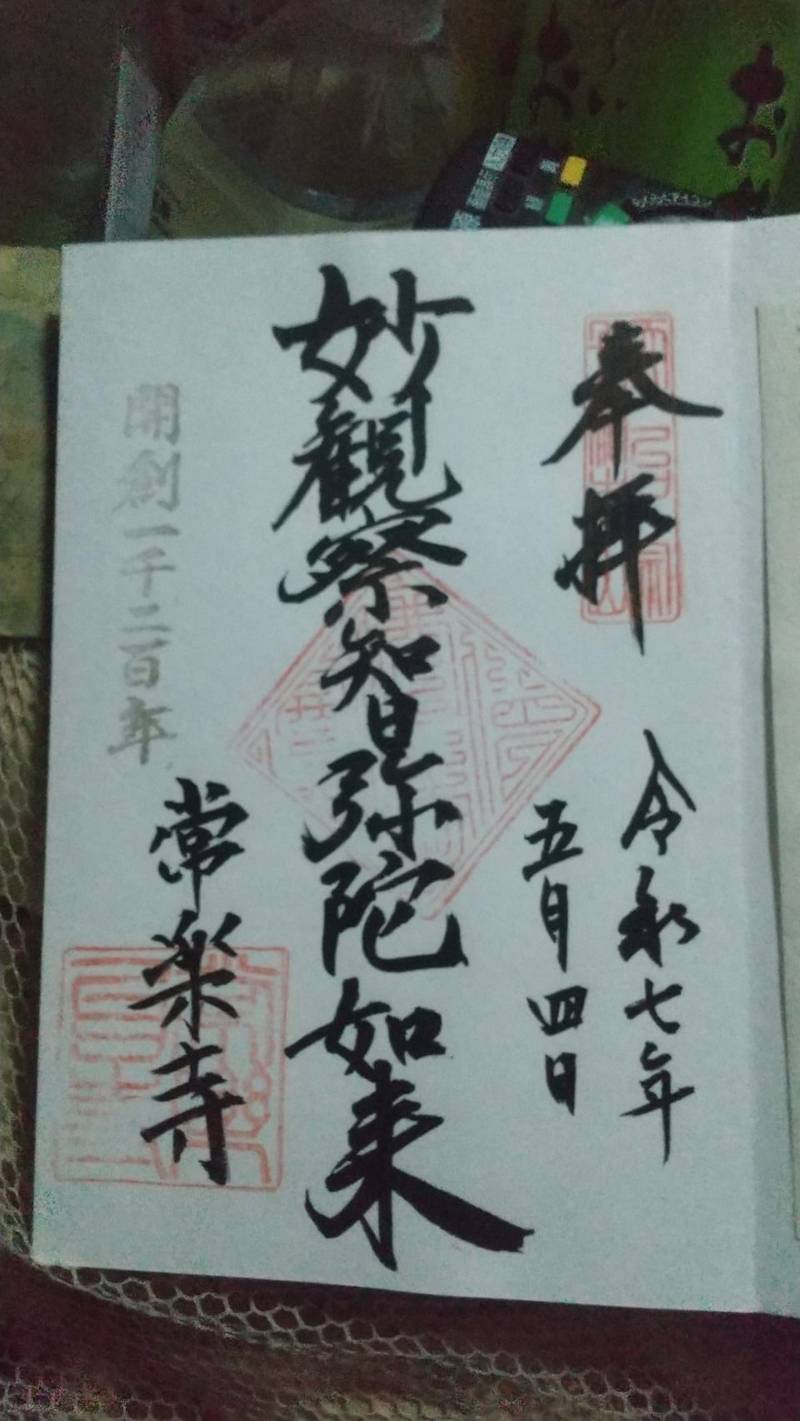 奉拝
令和七年
五月四日
妙觀察智弥陀如来
開創一千二百年
常楽寺